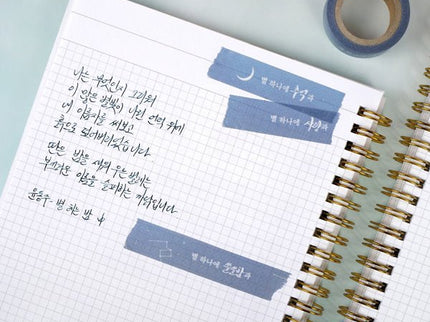 별 하나에 추억과
별 하나에 사랑과
나는 무엇인지 그리워
이 많은 별빛이 나린 언덕 위에
내 이름자를 써보고
흙으로 덮어버리었습니다
딴은 밤을 새워 우는 벌레는
부끄러운 이름을 슬퍼하는 까닭입니다.
윤동주 - 별 헤는 밤
별 하나에 쓸쓸함과